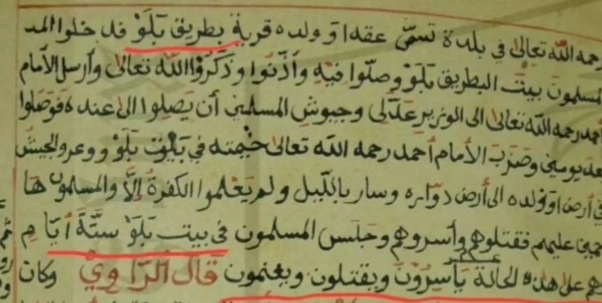 رحمه الله تعالى في بلدة تسمى عقدا وولده قرية بطريق بلو فدخلوا المد
المسلمون بيت البطريق بلو وصلوا فيه وأذنوا وذكروا الله تعالى وأرسل الأمام
أحمد رحمه الله تعالى الى الوزير عدلى وجيوش المسلمين أن يصلوا الى عنده فوصلوا
بعد يومين وضرب الأمام أحمد رحمه الله تعالى خيمته في بيت بلو ووعر والجيش
في أرض اوولده الى أرض دواره وسار بالليل ولم يعلموا الكفرة إلا والمسلمون ها
جمين عليهم فقتلوهم وأسروهم وجلس المسلمون في بيت بلو ستة أيام
وهم على هذه الحالة يأسرون ويقتلون ويغنمون قال الراوي وكان